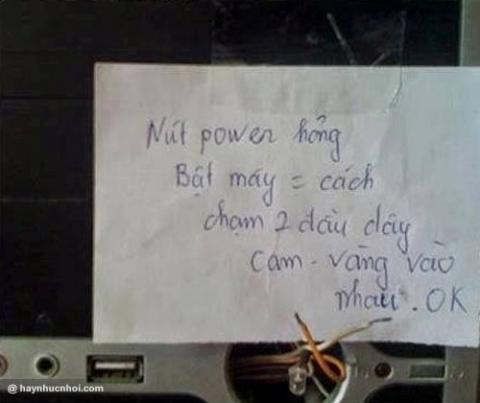 Nút power hỏng
Bật máy = cách
chạm 2 đầu dây
cam - vàng vào
nhau . OK
@ haynhucnhoi.com